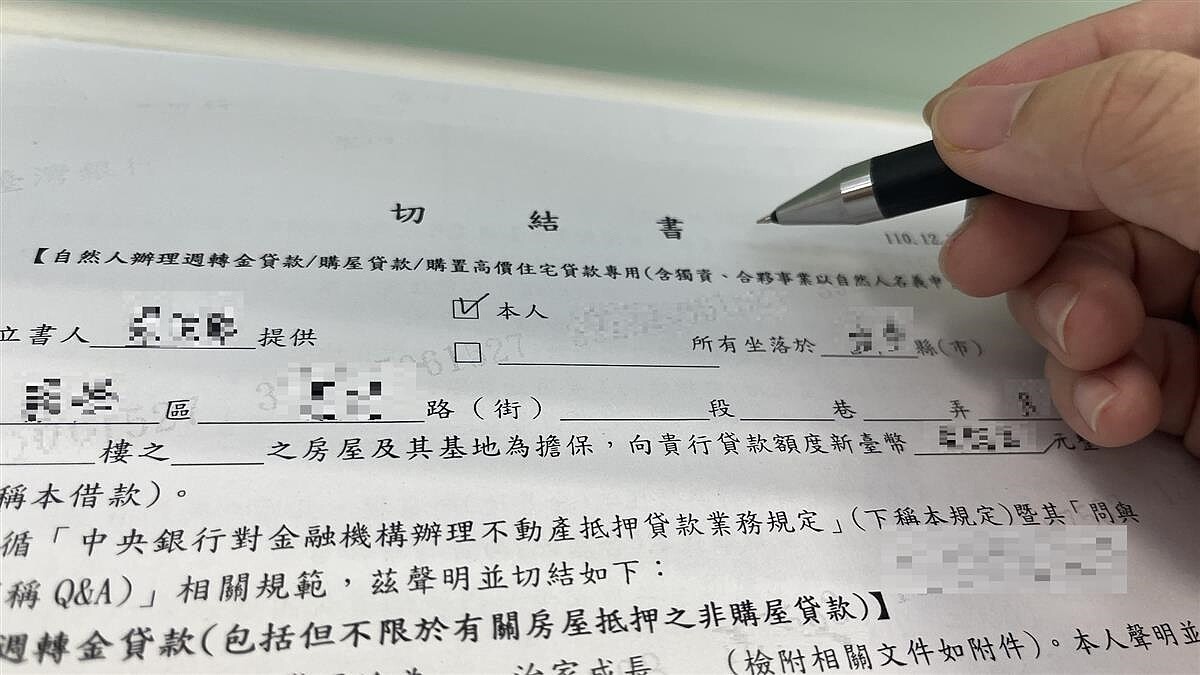 臺灣銀行
切結書
110.12.
【自然人辦理週轉金貸款/購屋貸款/購置高價住宅貸款專用(含獨資、合夥事業以自然人名義申
立書人 提供 本人 所有坐落於 縣(市)
區 路(街) 段 巷 弄
樓之 之房屋及其基地為擔保，向貴行貸款額度新臺幣 元
稱本借款)。
循「中央銀行對金融機構辦理不動產抵押貸款業務規定」(下稱本規定)暨其「問與
稱Q&A)」相關規範，茲聲明並切結如下：
週轉金貸款(包括但不限於有關房屋抵押之非購屋貸款)】
(檢附相關文件如附件)。本人聲明並